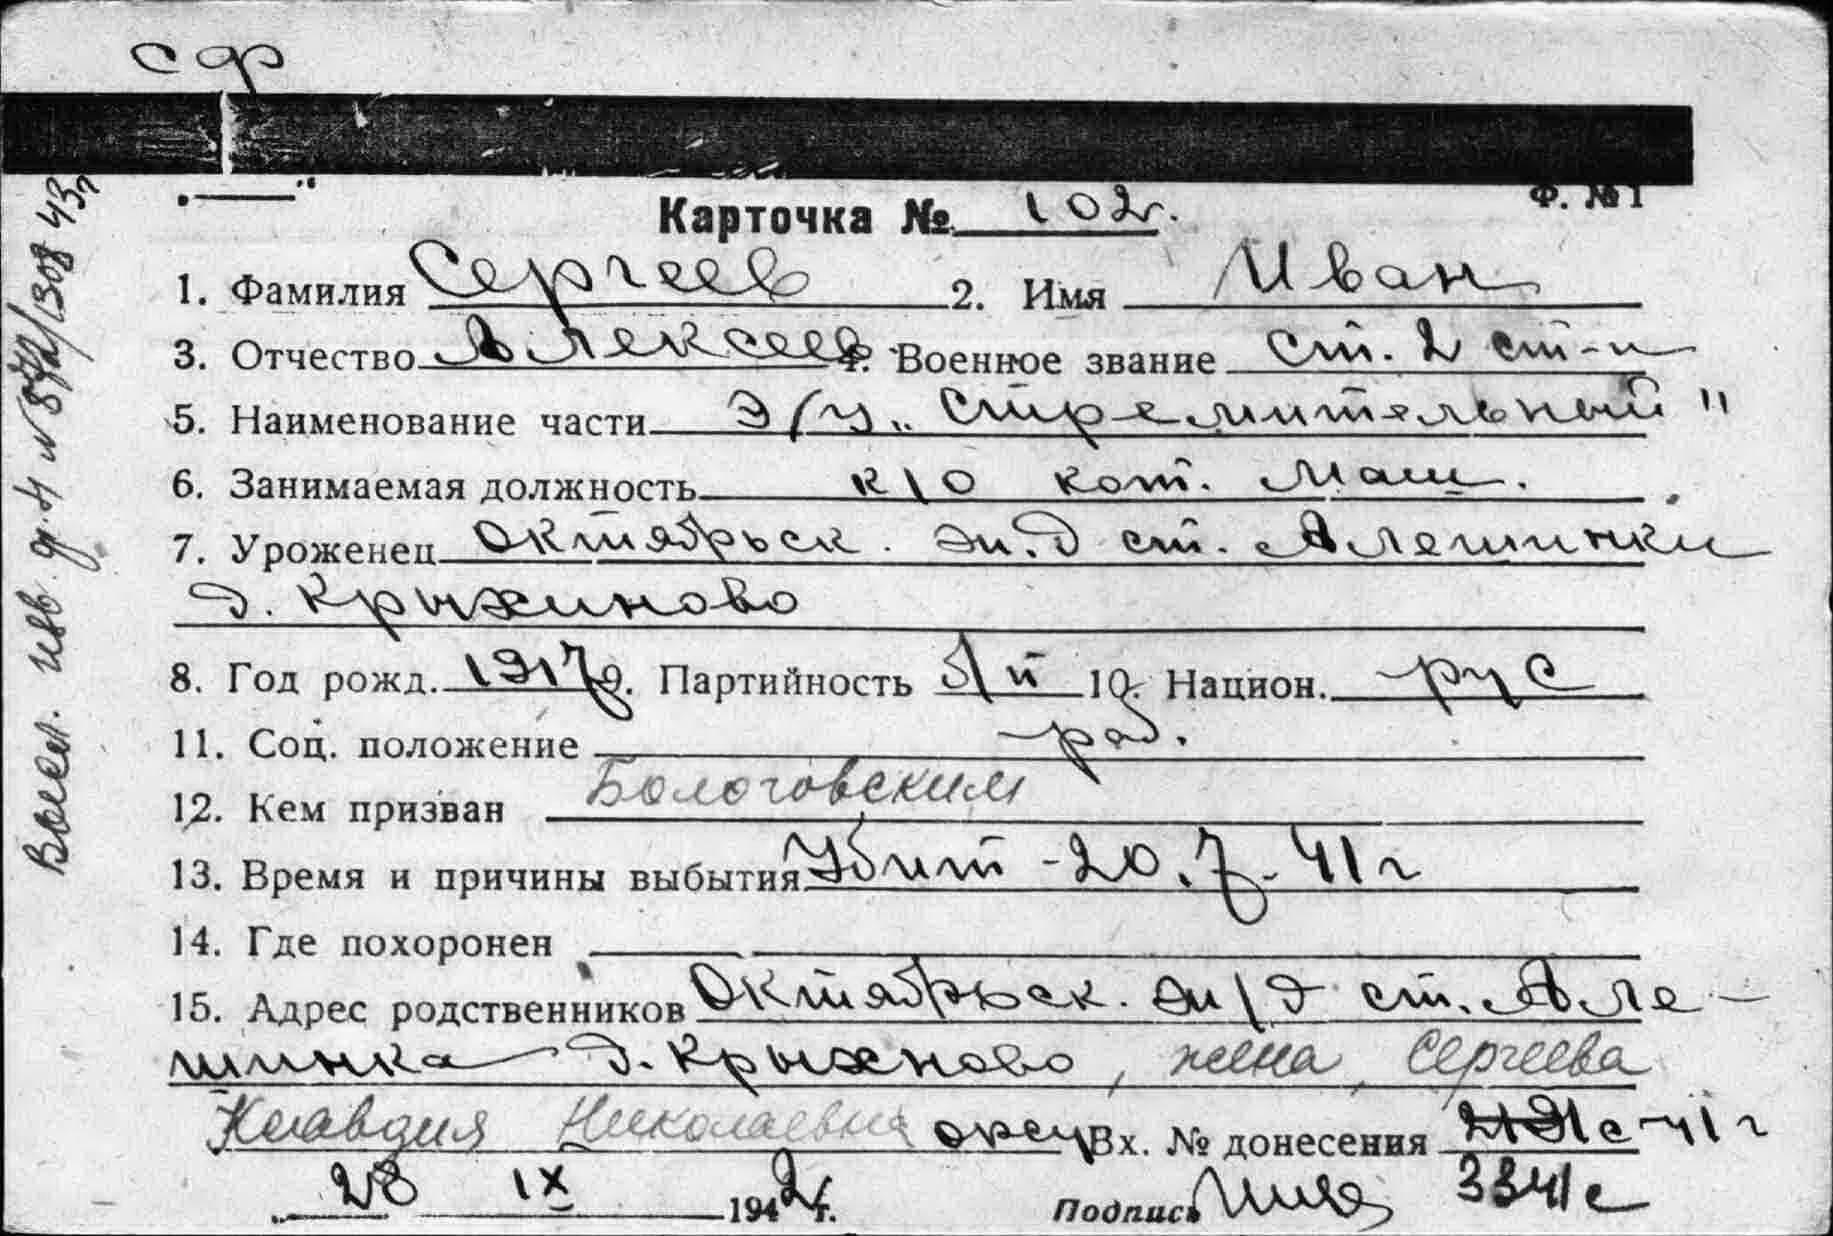 СФ
Ф. № 1
Карточка № 102г.
1. Фамилия Сергеев 2. Имя Иван
3. Отчество Алексеев. 4. Военное звание ст. 2 ст-и
5. Наименование части Э/М „Стремительный"
6. Занимаемая должность к\о кот. маш.
7. Уроженец Октябрьск. ж.д ст. Алешинки
д. Крыжиново
8. Год рожд. 1917 9. Партийность б\п 10. Национ. рус
11. Соц. положение раб.
12. Кем призван Бологовским
13. Время и причины выбытия Убит - 20.7.41г
14. Где похоронен
15. Адрес родственников Октябрьск. ж\д ст. Але-
шинка д. Крыжново, жена, Сергеева
Клавдия Николаевна Вх. № донесения с-41г
„28 IX 1942г.
Подпись 3341с